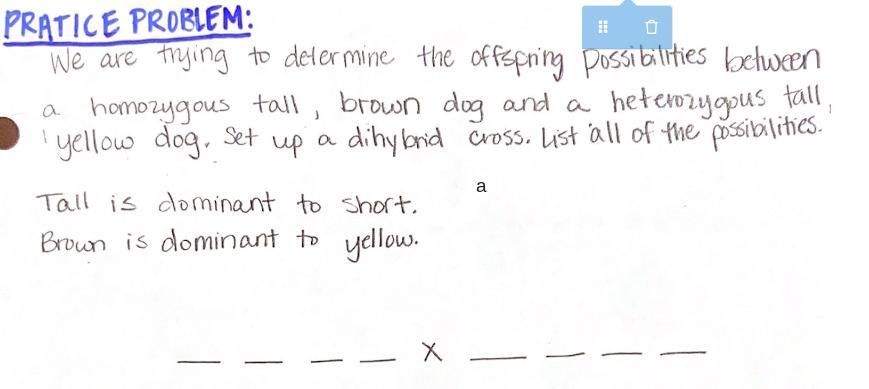 PRATICE PROBLEM:
We are trying to determine the offspring possibilities between
a homozygous tall, brown dog and a heterozygous tall,
yellow dog. Set up a dihybrid cross. List all of the possibilities.
a
Tall is dominant to short.
Brown is dominant to yellow.
__ __ __ __ X __ __ __ __